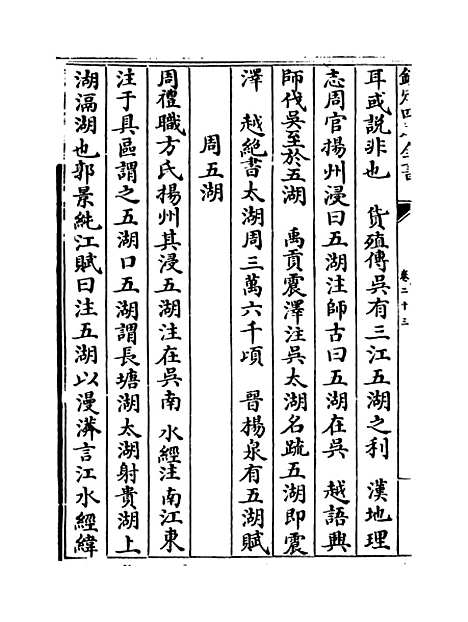 欽定四庫全書
卷二十三
耳或說非也　貨殖傳吳有三江五湖之利　漢地理
志周官揚州浸曰五湖注師古曰五湖在吳　越語興
師伐吳至於五湖　禹貢震澤注吳太湖名疏五湖即震
澤　越絕書太湖周三萬六千頃　晉楊泉有五湖賦
周五湖
周禮職方氏揚州其浸五湖注在吳南　水經注南江東
注于具區謂之五湖口五湖謂長塘湖太湖射貴湖上
湖滆湖也郭景純江賦曰注五湖以漫漭言江水經緯